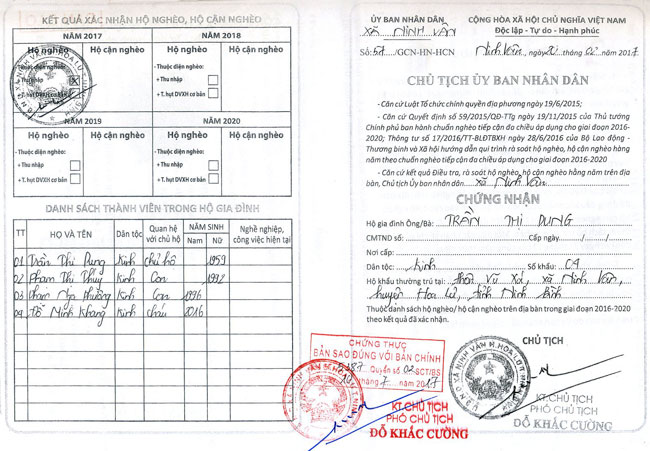 KẾT QUẢ XÁC NHẬN HỘ NGHÈO, HỘ CẬN NGHÈO
NĂM 2017
NĂM 2018
Hộ nghèo
Hộ cận nghèo
Hộ nghèo
Hộ cận nghèo
- Thuộc diện nghèo
+ Thu nhập
+ T. hụt DVXH cơ bản
- Thuộc diện nghèo
+ Thu nhập
+ T. hụt DVXH cơ bản
NĂM 2019
NĂM 2020
Hộ nghèo
Hộ cận nghèo
Hộ nghèo
Hộ cận nghèo
- Thuộc diện nghèo:
+ Thu nhập
+ T. hụt DVXH cơ bản
- Thuộc diện nghèo:
+ Thu nhập
+ T. hụt DVXH cơ bản
DANH SÁCH THÀNH VIÊN TRONG HỘ GIA ĐÌNH
TT HỌ VÀ TÊN Dân tộc Quan hệ với chủ hộ NĂM SINH Nam Nữ Nghề nghiệp, công việc hiện tại
01 Trần Thị Dung Kinh chủ hộ 1959
02 Phạm Thị Thúy Kinh Con 1992
03 Phạm Kinh Con 1996
04 Minh Khang Kinh cháu 2016
CHỨNG THỰC
BẢN SAO ĐÚNG VỚI BẢN CHÍNH
Quyển số 02 SCT/BS
tháng 7 năm 2017
KT.CHỦ TỊCH
PHÓ CHỦ TỊCH
ĐỖ KHẮC CƯỜNG
ỦY BAN NHÂN DÂN
XÃ NINH VÂN
Số: 57/GCN-HN-HCN
CỘNG HÒA XÃ HỘI CHỦ NGHĨA VIỆT NAM
Độc lập - Tự do - Hạnh phúc
Ninh Vân, ngày 20 tháng 02 năm 2017
CHỦ TỊCH ỦY BAN NHÂN DÂN
- Căn cứ Luật Tổ chức chính quyền địa phương ngày 19/6/2015;
- Căn cứ Quyết định số 59/2015/QĐ-TTg ngày 19/11/2015 của Thủ tướng
Chính phủ ban hành chuẩn nghèo tiếp cận đa chiều áp dụng cho giai đoạn 2016-
2020; Thông tư số 17/2016/TT-BLĐTBXH ngày 28/6/2016 của Bộ Lao động -
Thương binh và Xã hội hướng dẫn qui trình rà soát hộ nghèo, hộ cận nghèo hàng
năm theo chuẩn nghèo tiếp cận đa chiều áp dụng cho giai đoạn 2016-2020
- Căn cứ kết quả Điều tra, rà soát hộ nghèo, hộ cận nghèo hằng năm trên địa
bàn, Chủ tịch Ủy ban nhân dân xã Ninh Vân
CHỨNG NHẬN
Hộ gia đình Ông/Bà: TRẦN THỊ DUNG
CMTND số: Cấp ngày / /
Nơi cấp:
Dân tộc: Kinh Số khẩu: 04
Hộ khẩu thường trú tại: thôn Vũ Xá, xã Ninh Vân,
huyện Hoa Lư, tỉnh Ninh Bình
Thuộc danh sách hộ nghèo/ hộ cận nghèo trên địa bàn trong giai đoạn 2016-2020
theo kết quả đã xác nhận.
CHỦ TỊCH
KT.CHỦ TỊCH
PHÓ CHỦ TỊCH
ĐỖ KHẮC CƯỜNG